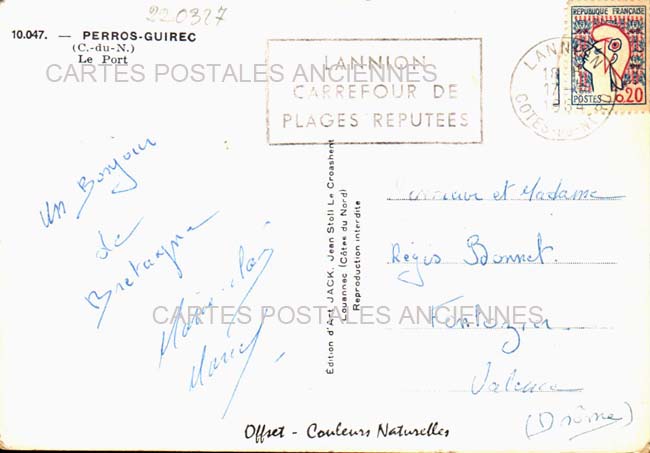 220327
10.047. — PERROS-GUIREC
(C.-du-N.)
Le Port
CARTES POSTALES ANCIENNES
LANNION
CARREFOUR DE
PLAGES REPUTEES
LANNION
COTES-DU-NORD
REPUBLIQUE FRANÇAISE
POSTES 0,20
Un Bonjour
de
Bretagne
Édition d'Art JACK, Jean Stoll Le Croashent
Louannec (Côtes du Nord)
Reproduction interdite
Monsieur et Madame
Régis Bonnet
CARTES POSTALES ANCIENNES
Valence
(Drôme)
Offset - Couleurs Naturelles